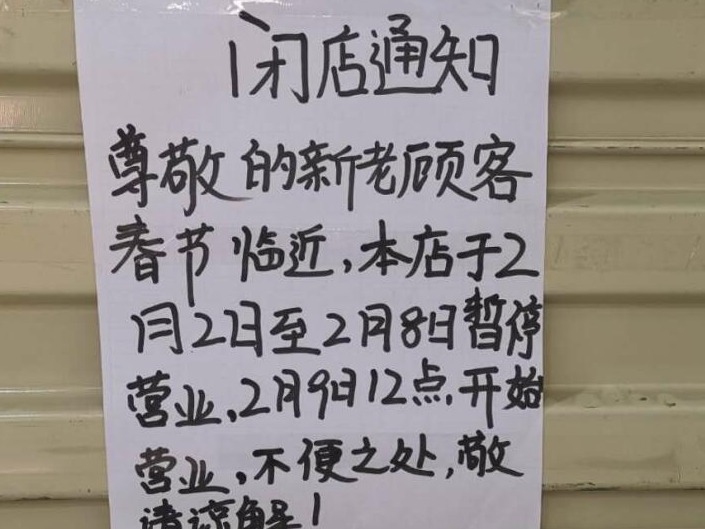 闭店通知
尊敬的新老顾客
春节临近,本店于2
月2日至2月8日暂停
营业,2月9日12点,开始
营业,不便之处,敬
请谅解!